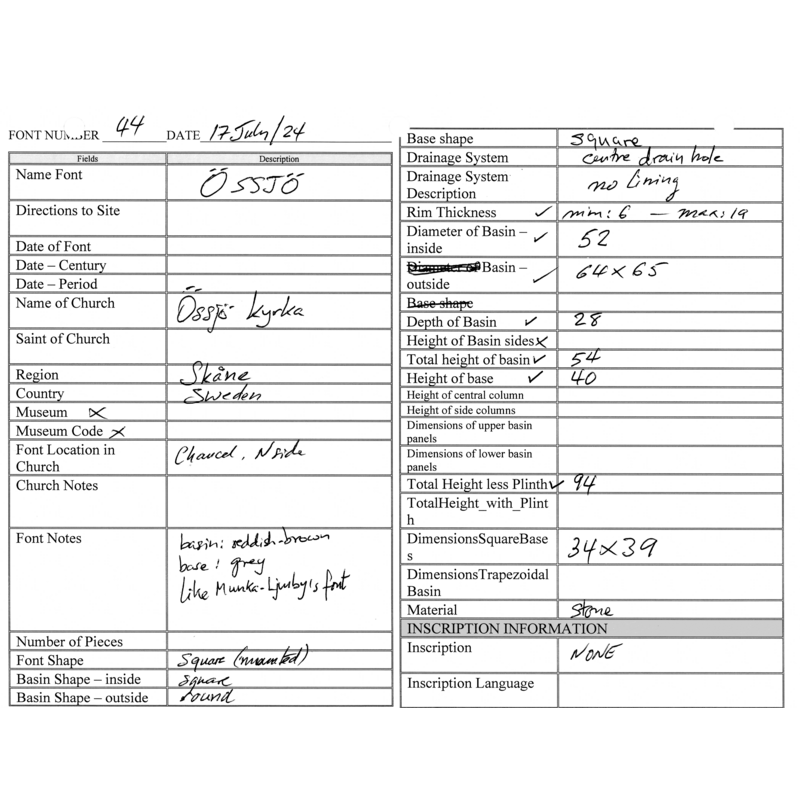 FONT NUMBER 44 DATE 17 July/24
Fields Description
Name Font ÖSSJÖ
Directions to Site
Date of Font
Date – Century
Date – Period
Name of Church Össjö kyrka
Saint of Church
Region Skåne
Country Sweden
Museum X
Museum Code X
Font Location in Chancel, N side
Church
Church Notes
Font Notes basin: reddish-brown
base: grey
like Munka-Ljunby's font
Number of Pieces
Font Shape Square (mounted)
Basin Shape – inside square
Basin Shape – outside round
Base shape square
Drainage System centre drain hole
Drainage System no lining
Description
Rim Thickness ✓ min: 6 – max: 19
Diameter of Basin – ✓ 52
inside
Diameter of Basin – ✓ 64 x 65
outside
Base shape
Depth of Basin ✓ 28
Height of Basin sides X
Total height of basin ✓ 54
Height of base ✓ 40
Height of central column
Height of side columns
Dimensions of upper basin
panels
Dimensions of lower basin
panels
Total Height less Plinth ✓ 94
TotalHeight_with_Plint
h
DimensionsSquareBase 34 x 39
s
DimensionsTrapezoidal
Basin
Material Stone
INSCRIPTION INFORMATION
Inscription NONE
Inscription Language